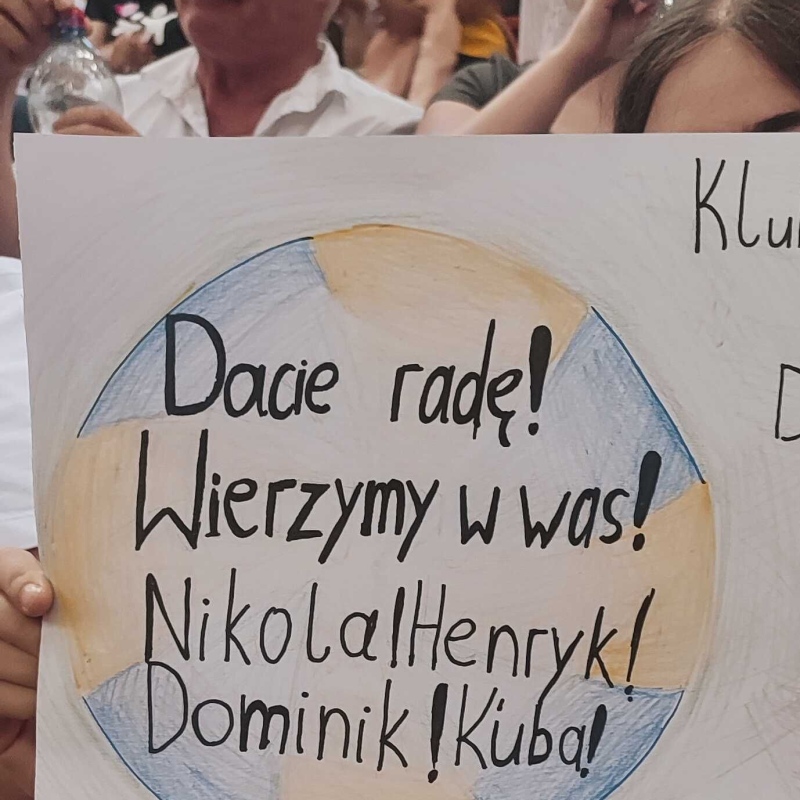 Dacie radę!
Wierzymy w was!
Nikola! Henryk!
Dominik! Kuba!